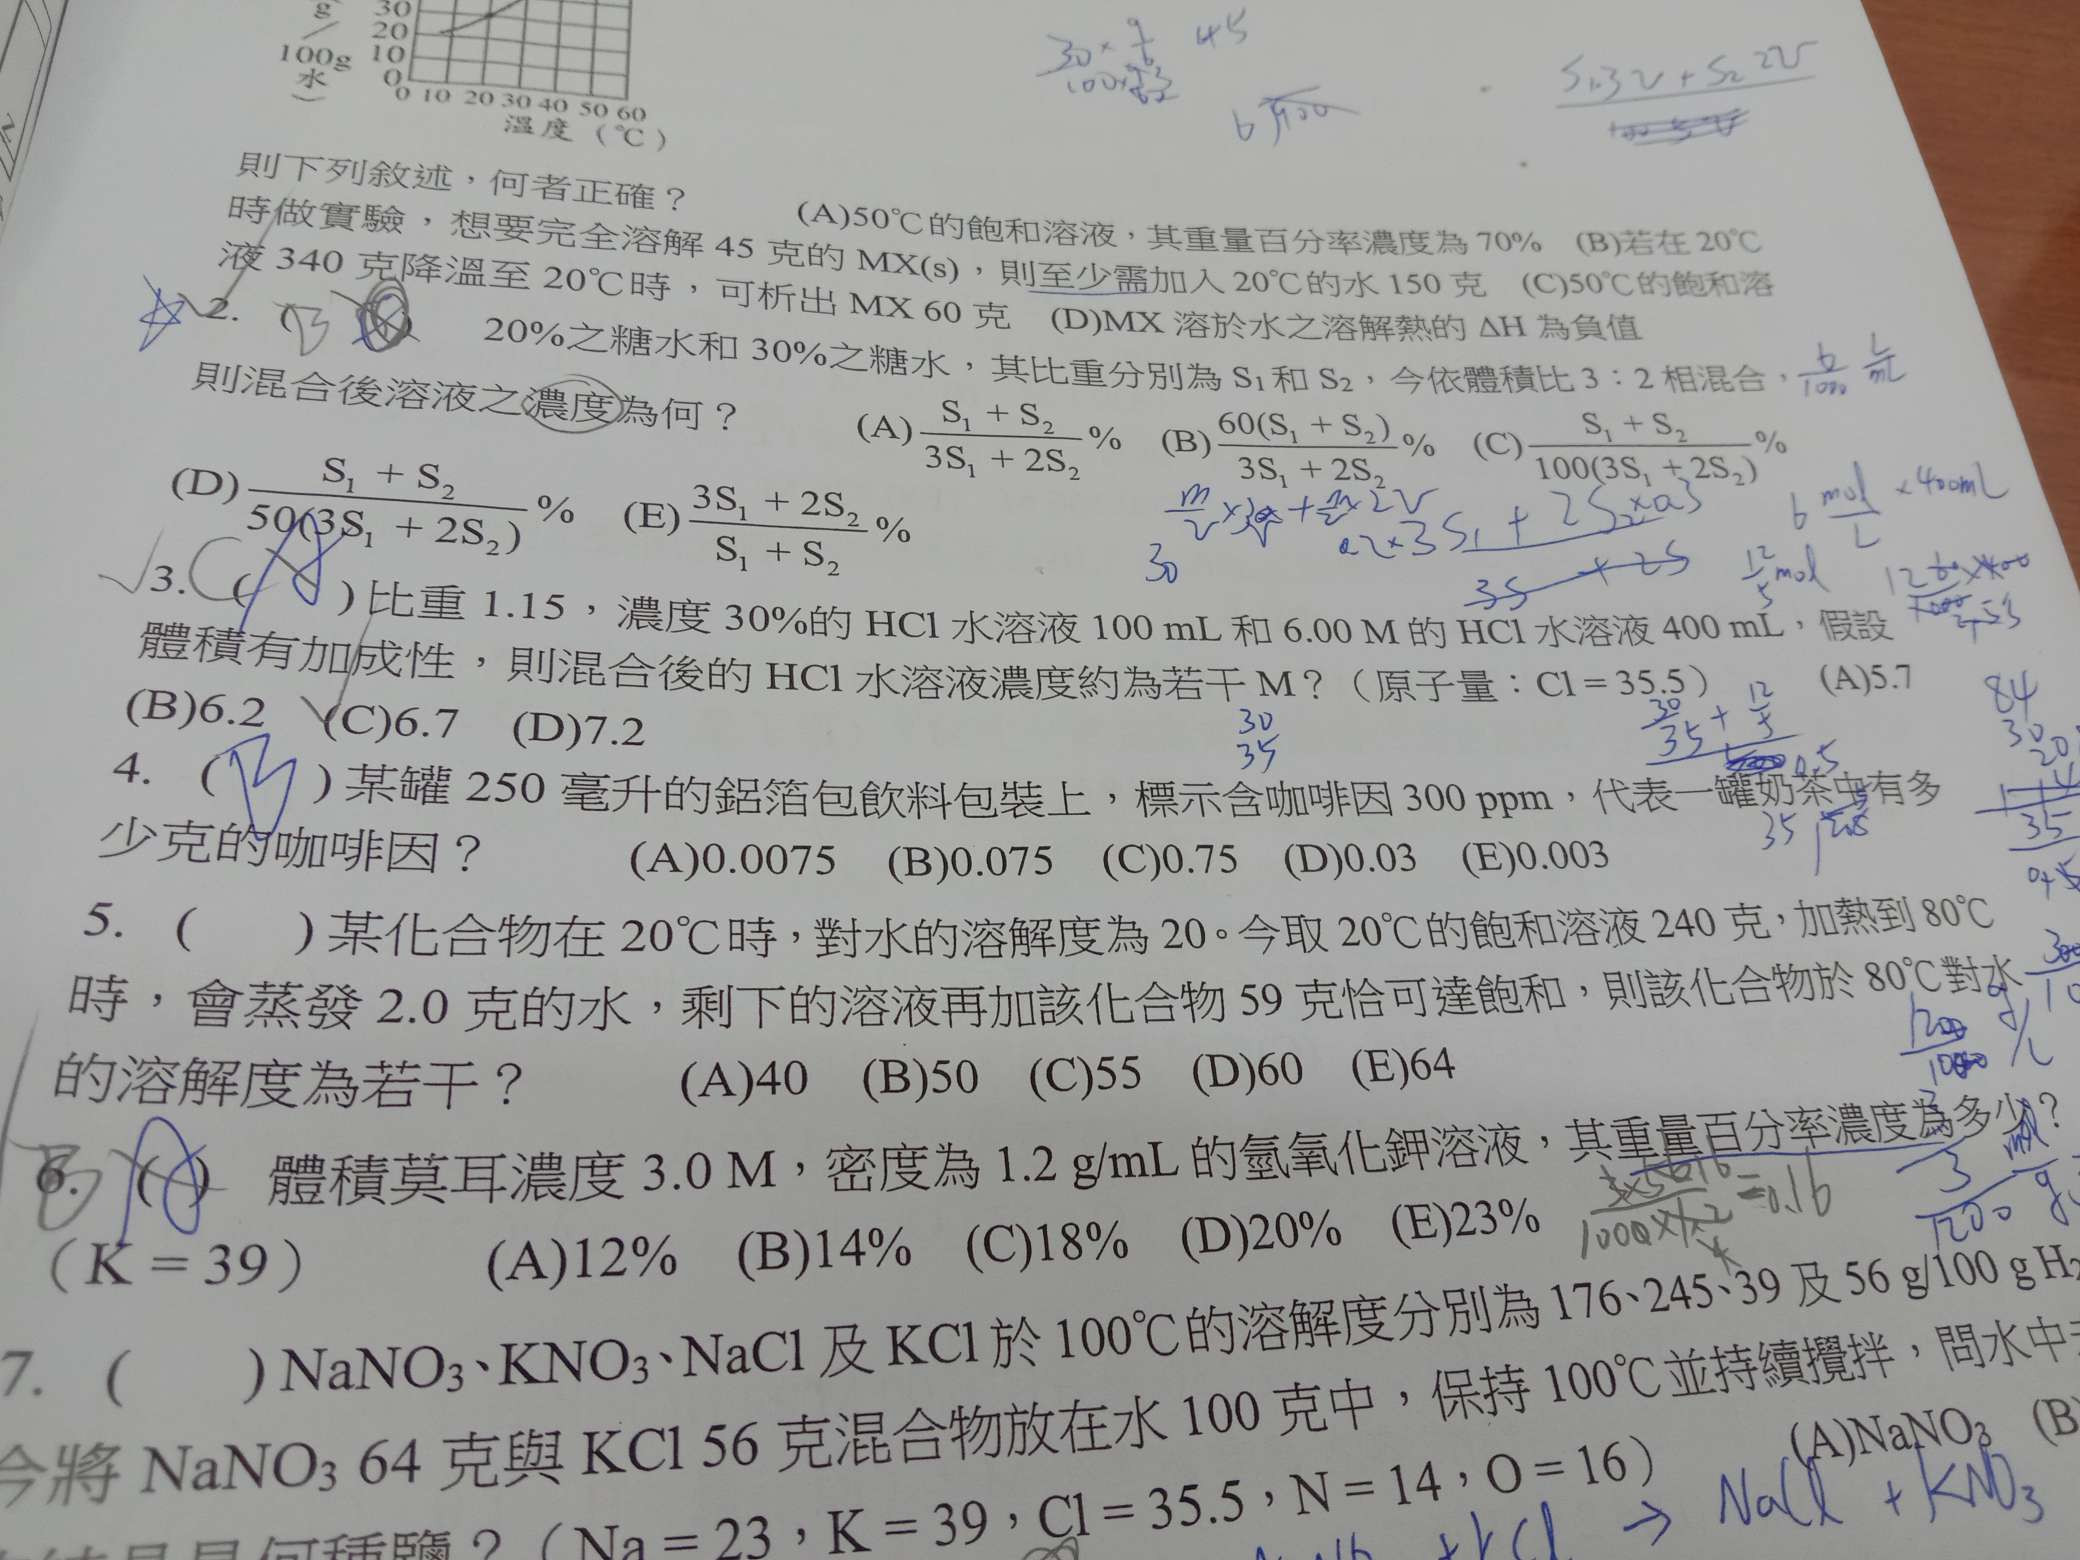 g
/
100g
水
)
30
20
10
0
0 10 20 30 40 50 60
溫度(℃)
30 × 45
6 400
S₁3V + S₂2V
則下列敘述，何者正確？ (A)50℃的飽和溶液，其重量百分率濃度為70% (B)若在20℃
時做實驗，想要完全溶解 45 克的 MX(s)，則至少需加入 20℃的水 150 克 (C)50℃的飽和溶
液 340 克降溫至 20℃時，可析出 MX 60 克 (D)MX 溶於水之溶解熱的 ΔH 為負值
2. (B ) 20%之糖水和 30%之糖水，其比重分別為 S₁和 S₂，今依體積比 3：2 相混合，
6/1000 L/mL
則混合後溶液之濃度為何？ (A) (S₁ + S₂)/(3S₁ + 2S₂) % (B) 60(S₁ + S₂)/(3S₁ + 2S₂) % (C) (S₁ + S₂)/(100(3S₁ + 2S₂)) %
(D) (S₁ + S₂)/(50(3S₁ + 2S₂)) % (E) (3S₁ + 2S₂)/(S₁ + S₂) %
0.2×3S₁ + 2S₂×0.3
30
6 mol/L ×400mL
12/5 mol
3. C ( )比重 1.15，濃度 30%的 HCl 水溶液 100 mL 和 6.00 M 的 HCl 水溶液 400 mL，假設
體積有加成性，則混合後的 HCl 水溶液濃度約為若干 M？（原子量：Cl＝35.5） (A)5.7
(B)6.2 (C)6.7 (D)7.2
30/35
30/35 + 12/5
0.5
84
30
4. (B )某罐 250 毫升的鋁箔包飲料包裝上，標示含咖啡因 300 ppm，代表一罐奶茶中有多
少克的咖啡因？ (A)0.0075 (B)0.075 (C)0.75 (D)0.03 (E)0.003
35
5. ( )某化合物在 20℃時，對水的溶解度為 20。今取 20℃的飽和溶液 240 克，加熱到 80℃
時，會蒸發 2.0 克的水，剩下的溶液再加該化合物 59 克恰可達飽和，則該化合物於 80℃對水
的溶解度為若干？ (A)40 (B)50 (C)55 (D)60 (E)64
6. B (A) 體積莫耳濃度 3.0 M，密度為 1.2 g/mL 的氫氧化鉀溶液，其重量百分率濃度為多少？
3×56/1000×1.2 = 0.16
3/1200 mol/g
（K＝39） (A)12% (B)14% (C)18% (D)20% (E)23%
7. ( )NaNO₃、KNO₃、NaCl 及 KCl 於 100℃的溶解度分別為 176、245、39 及 56 g/100 g H₂
今將 NaNO₃ 64 克與 KCl 56 克混合物放在水 100 克中，保持 100℃並持續攪拌，問水中
何種鹽？（Na＝23，K＝39，Cl＝35.5，N＝14，O＝16） (A)NaNO₃ (B)
+ KCl → NaCl + KNO₃